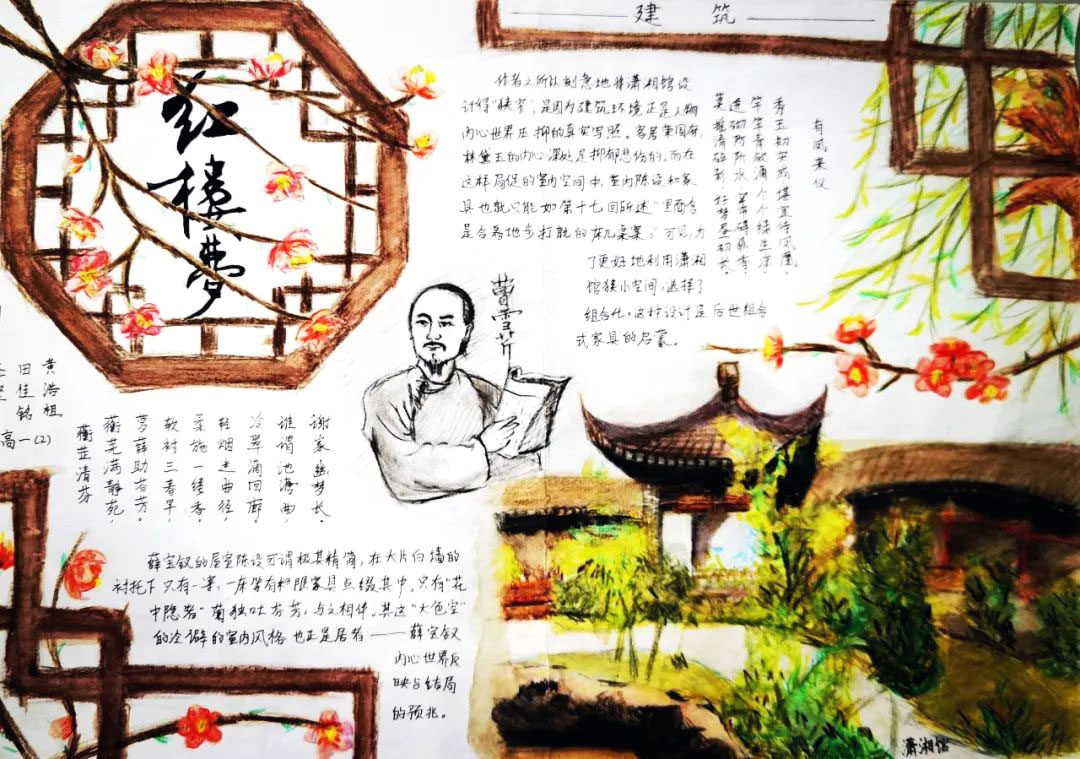 建 筑
红楼梦
作者之所以刻意地将潇湘馆设
计得"狭窄",是因为建筑环境正是人物
内心世界压抑的真实写照。客居荣国府,
林黛玉的内心深处是抑郁悲伤的,而在
这样局促的室内空间中,室内陈设和家
具也就只能如第十七回所述"里面
是合着地步打就的床几桌案。"可见,为
了更好地利用潇湘
馆狭小空间,选择了
组合化,这种设计是后世组合
式家具的启蒙。
有凤来仪
秀玉初实成,堪宜待凤凰。
竿竿青欲滴,个个绿生凉。
迸砌防阶水,穿帘碍鼎香。
莫摇清碎影,好梦昼初长。
曹雪芹
黄浩祖
田佳铭
高一(2)
蘅芷清芬
蘅芜满静苑,
萝薜助芬芳。
软衬三春草,
柔拖一缕香。
轻烟迷曲径,
冷翠滴回廊。
谁谓池塘曲,
谢家幽梦长。
薛宝钗的居室陈设可谓极其精简,在大片白墙的
衬托下只有一案、一床等有限家具点缀其中,只有"花
中隐者"菊独吐芬芳,与之相伴。其这"大色空"
的冷僻的室内风格也正是居者——薛宝钗
内心世界反
映与结局
的预兆。
潇湘馆